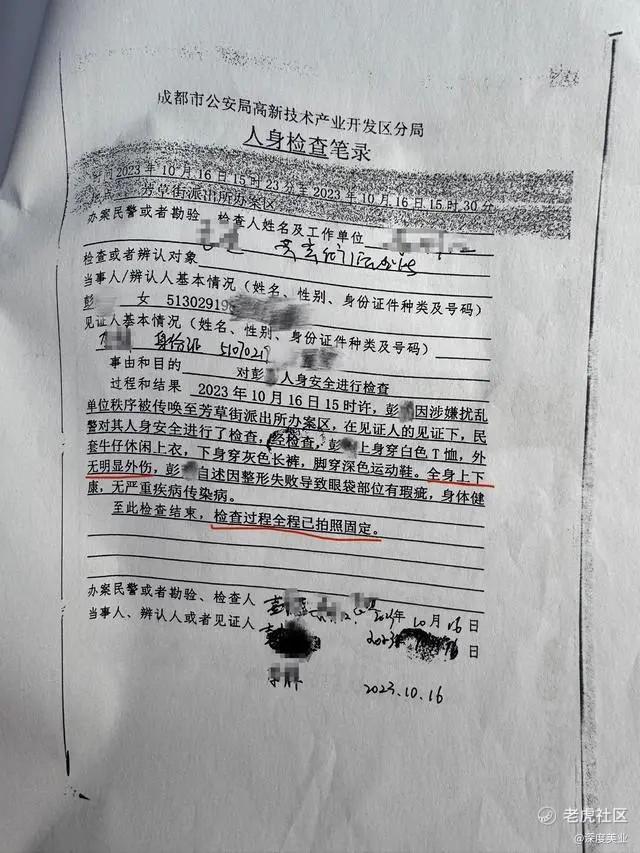 成都市公安局高新技术产业开发区分局
人身检查笔录
时间2023年10月16日15时23分至2023年10月16日15时30分
地点 芳草街派出所办案区
办案民警或者勘验、检查人姓名及工作单位
检查或者辨认对象
当事人/辨认人基本情况（姓名、性别、身份证件种类及号码）
彭 女 51302919
见证人基本情况（姓名、性别、身份证件种类及号码）
身份证 5107021
事由和目的 对彭 人身安全进行检查
过程和结果 2023年10月16日15时许，彭 因涉嫌扰乱
单位秩序被传唤至芳草街派出所办案区，在见证人的见证下，民
警对其人身安全进行了检查，经检查，彭 上身穿白色T恤，外
套牛仔休闲上衣，下身穿灰色长裤，脚穿深色运动鞋。全身上下
无明显外伤，彭 自述因整形失败导致眼袋部位有瑕疵，身体健
康，无严重疾病传染病。
至此检查结束，检查过程全程已拍照固定。
办案民警或者勘验、检查人 年10月16日
当事人、辨认人或者见证人 2023 16日
2023.10.16
老虎社区
@深度美业